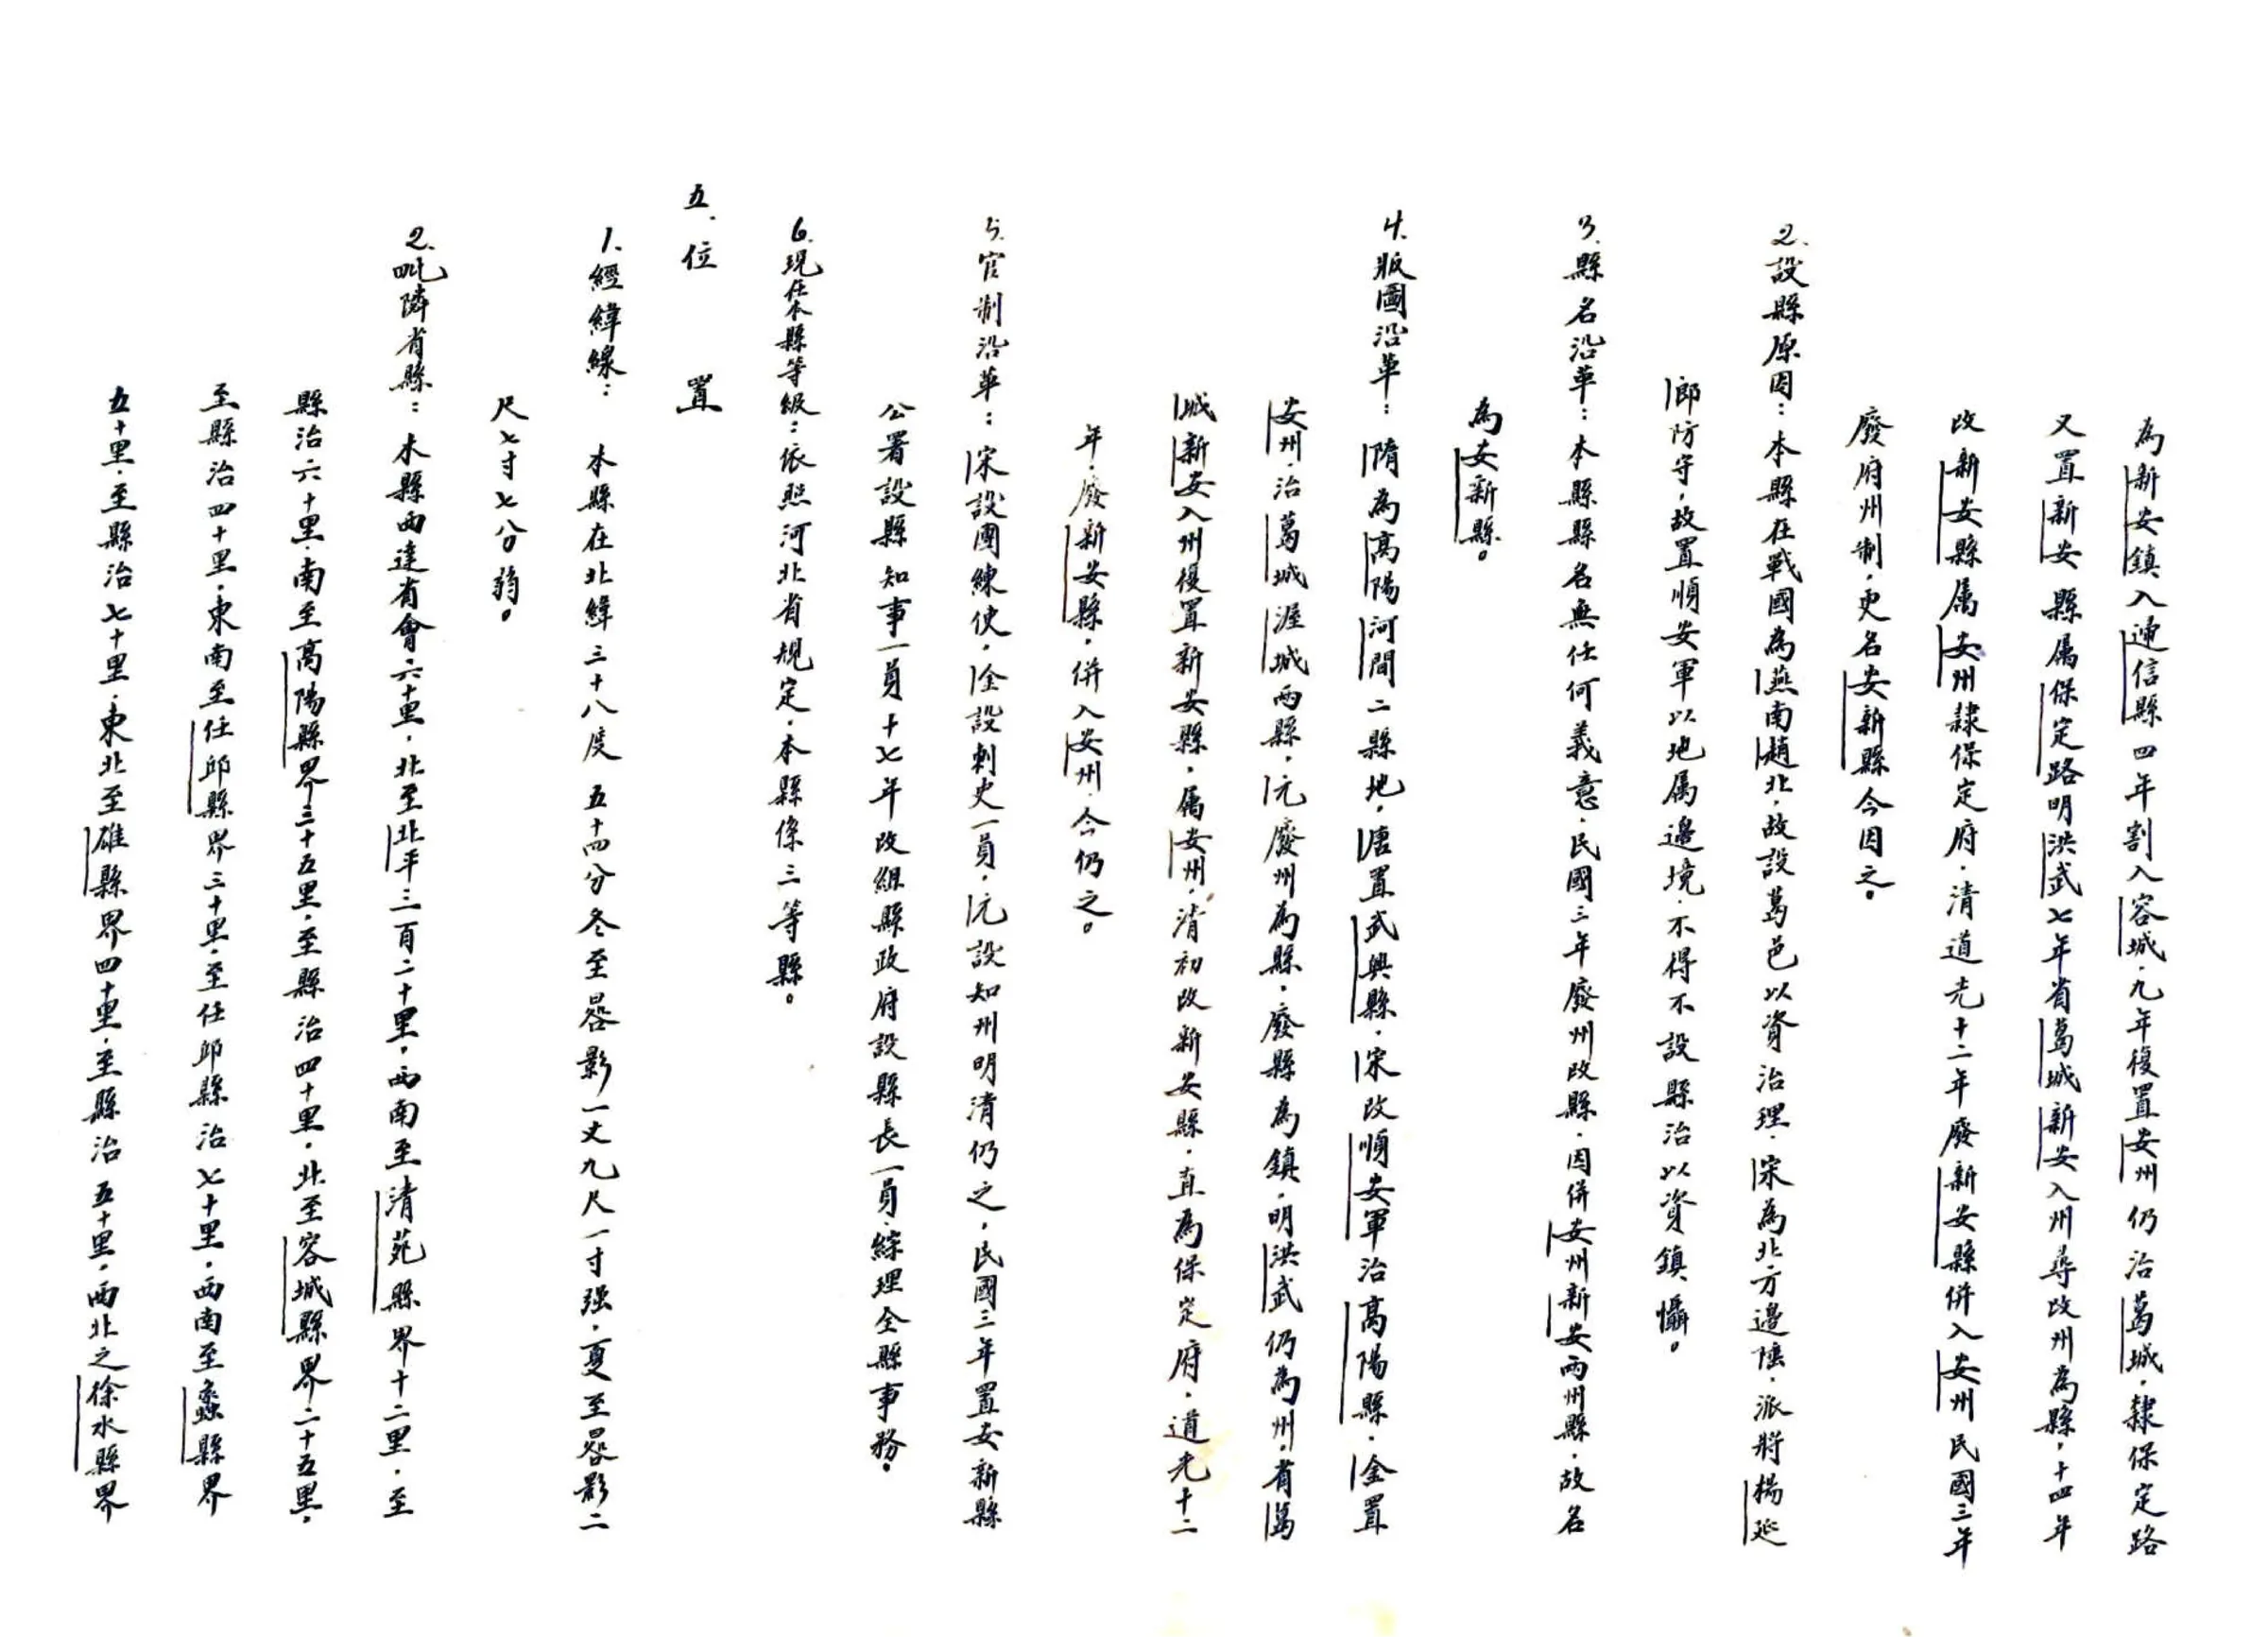 為新安鎮入遞信縣四年割入容城.九年復置安州仍治葛城.隸保定路
又置新安縣属保定路明洪武七年省葛城新安入州尋改州為縣.十四年
改新安縣属安州隸保定府.清道光十二年廢新安縣併入安州民國三年
廢府州制.更名安新縣今因之。
2.設縣原因:本縣在戰國為燕南趙北.故設葛邑以資治理.宋為北方邊陲.派將楊延
郎防守.故置順安軍以地属邊境.不得不設縣治以資鎮懾。
3.縣名沿革:本縣縣名無任何義意.民國三年廢州改縣.因併安州新安兩州縣.故名
為安新縣。
4.版圖沿革:隋為高陽河間二縣地.唐置武興縣.宋改順安軍治高陽縣.金置
安州.治葛城渥城兩縣.元廢州為縣.廢縣為鎮.明洪武仍為州.省葛
城新安入州復置新安縣.属安州.清初改新安縣.直為保定府.道光十二
年.廢新安縣.併入安州.今仍之。
5.官制沿革:宋設團練使.金設刺史一員.元設知州明清仍之.民國三年置安新縣
公署設縣知事一員十七年改組縣政府設縣長一員.綜理全縣事務。
6.現任本縣等級:依照河北省規定.本縣係三等縣。
五.位置
1.經緯線:本縣在北緯三十八度五十四分冬至晷影一丈九尺一寸强.夏至晷影二
尺七寸七分弱。
2.毗隣省縣:本縣西達省會六十里.北至北平三百二十里.西南至清苑縣界十二里.至
縣治六十里.南至高陽縣界三十五里.至縣治四十里.北至容城縣界二十五里.
至縣治四十里.東南至任邱縣界三十里.至任邱縣治七十里.西南至蠡縣界
五十里.至縣治七十里.東北至雄縣界四十里.至縣治五十里.西北之徐水縣界